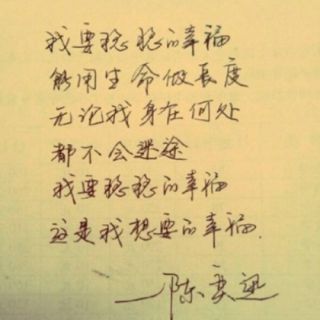 我要稳稳的幸福
能用生命做长度
无论我身在何处
都不会迷途
我要稳稳的幸福
这是我想要的幸福.
—陈奕迅